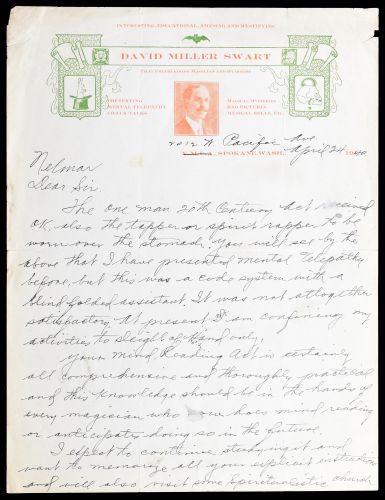 INTERESTING, EDUCATIONAL, AMUSING AND MYSTIFYING
DAVID MILLER SWART
THAT ENTERTAINING MAGICIAN AND HUMORIST
PRESENTING
MENTAL TELEPATHY
CHALK TALKS
MAGICAL MYSTERIES
RAG PICTURES
MUSICAL BELLS, ETC.
2012 W. Pacific Ave.
SPOKANE, WASH. April 24 1940
Nelmar
Dear Sir.
The One man 20th Century Act received
OK. also the tapper or spirit rapper to be
worn over the stomach. you will see by the
above that I have presented mental Telepathy
before, but this was a code system with a
blind folded assistant. It was not altogether
satisfactory. At present I am confining my
activities to Sleight of Hand only.
Your Mind Reading Act is certainly
all comprehensive and thoroughly practical
and this Knowledge should be in the hands of
every magician who now does mind reading
or anticipates doing so in the future.
I expect to continue studying it and
want to memorize all your explicit instructions
and will also visit some Spiritualistic church